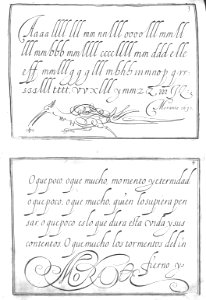 Aaaa llll lll mm nn llll oooo llll mm ll
llll mm bbb mm llll cccc llll mm dad elle
eff mm lll g g g lll m bhb iu m no p q rr
sss lll tttt vv x lll y m m z
O que poco, o que mucho, momento y eternidad
o que poco, o que mucho, quien lo supiera pen
sar, o que poco es lo que dura esta vida y sus
contentos, O que mucho los tormentos del in
fierno y